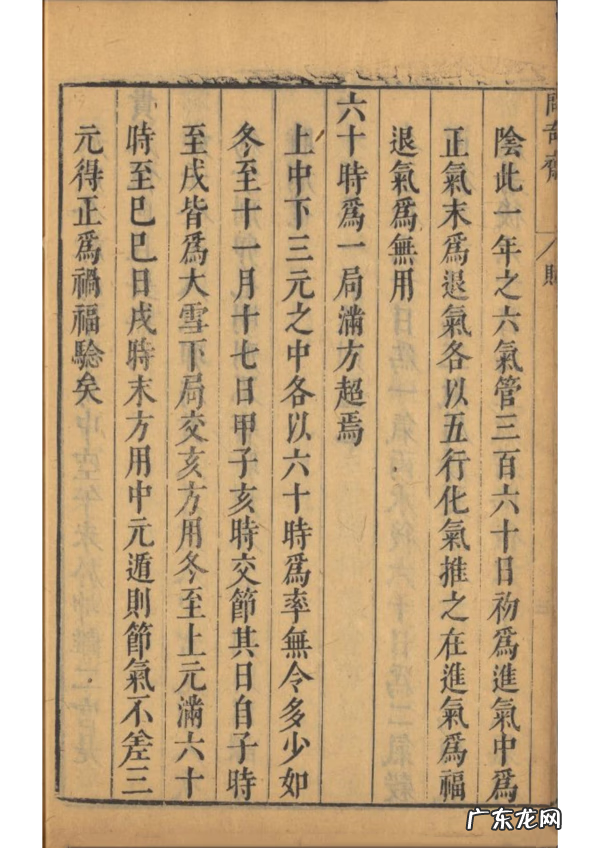 陰此一年之六氣管三百六十日初爲進氣中爲
正氣末爲退氣各以五行化氣推之在進氣爲福
退氣爲無用
六十時爲一局滿方超焉
上中下三元之中各以六十時爲率無令多少如
冬至十一月十七日甲子亥時交節其日自子時
至戌皆爲大雪下局交亥方用冬至上元滿六十
時至巳巳日戌時末方用中元遁則節氣不差三
元得正爲禍福驗矣
广东龙网